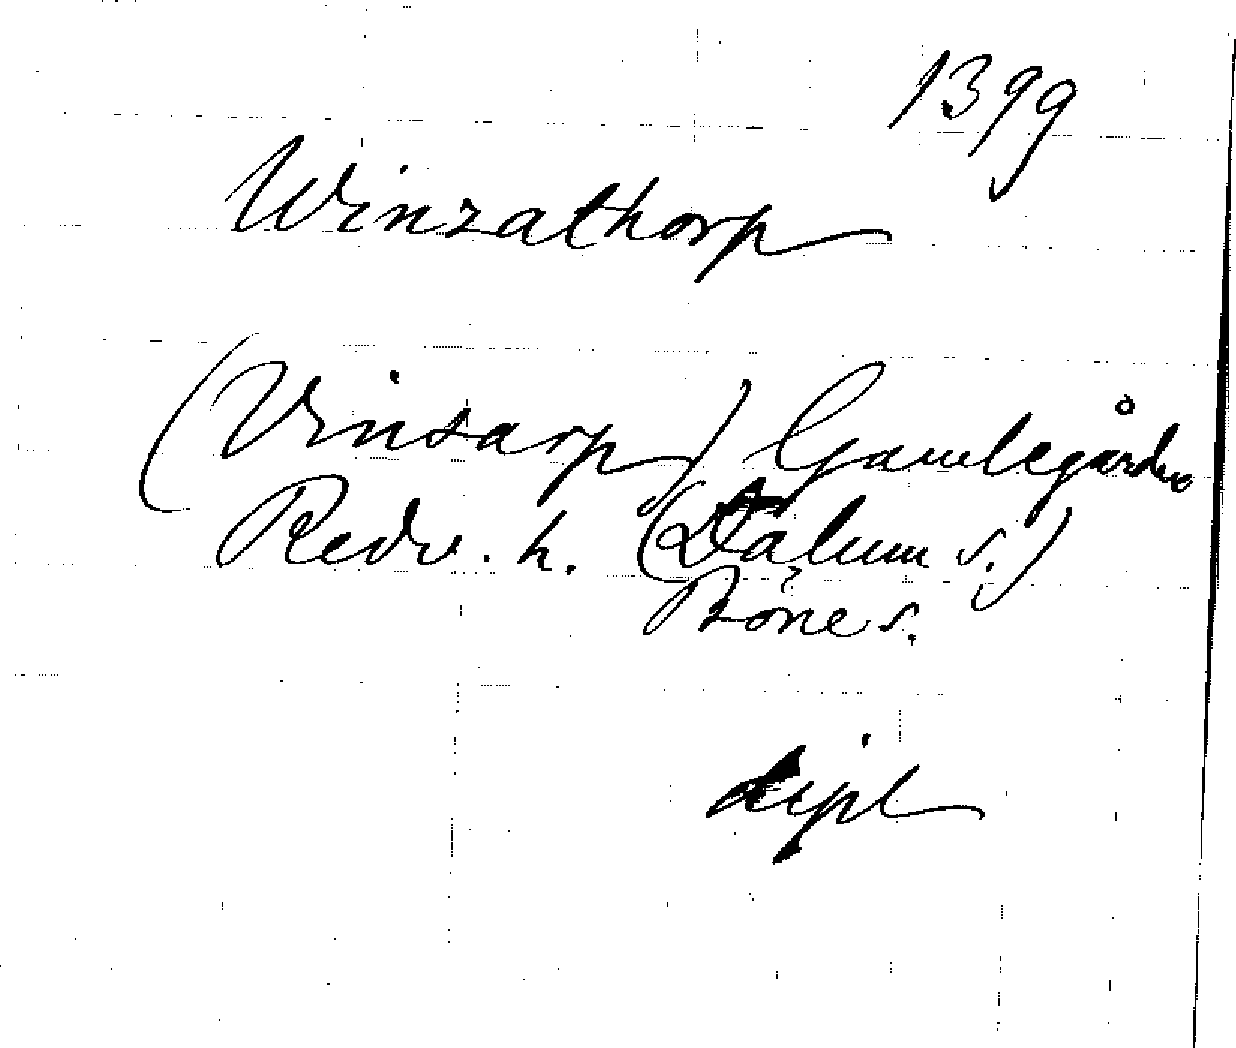 1399
Winzathorp
(Vinsarp) Gamlegården
Redv. h. (Dalum s.)
Böne s.
dipl